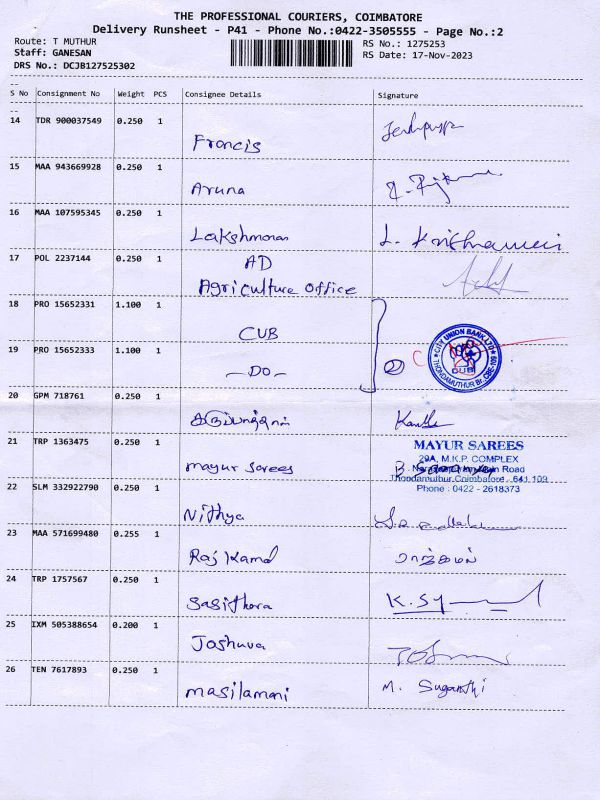 THE PROFESSIONAL COURIERS, COIMBATORE
Delivery Runsheet - P41 - Phone No.:0422-3505555 - Page No.:2
Route: T MUTHUR
Staff: GANESAN
DRS No.: DCJB127525302
RS No.: 1275253
RS Date: 17-Nov-2023
S No Consignment No Weight PCS Consignee Details Signature
14 TDR 900037549 0.250 1 Francis
15 MAA 943669928 0.250 1 Aruna
16 MAA 107595345 0.250 1 Lakshmanan L. Krishnaveni
17 POL 2237144 0.250 1 AD
Agriculture Office
18 PRO 15652331 1.100 1 CUB
19 PRO 15652333 1.100 1 -DO-
CITY UNION BANK LTD
CUB
THONDAMUTHUR Br. CBE-109
20 GPM 718761 0.250 1
21 TRP 1363475 0.250 1 mayur sarees
MAYUR SAREES
29A, M.K.P. COMPLEX
Main Road
Thondamuthur, Coimbatore - 641 109
Phone : 0422 - 2618373
22 SLM 332922790 0.250 1 Nithya
23 MAA 571699480 0.255 1 Raj Kamal ராஜ்கமல்
24 TRP 1757567 0.250 1 Sasithara
25 IXM 505388654 0.200 1 Joshuva
26 TEN 7617893 0.250 1 masilamani M. Suganthi